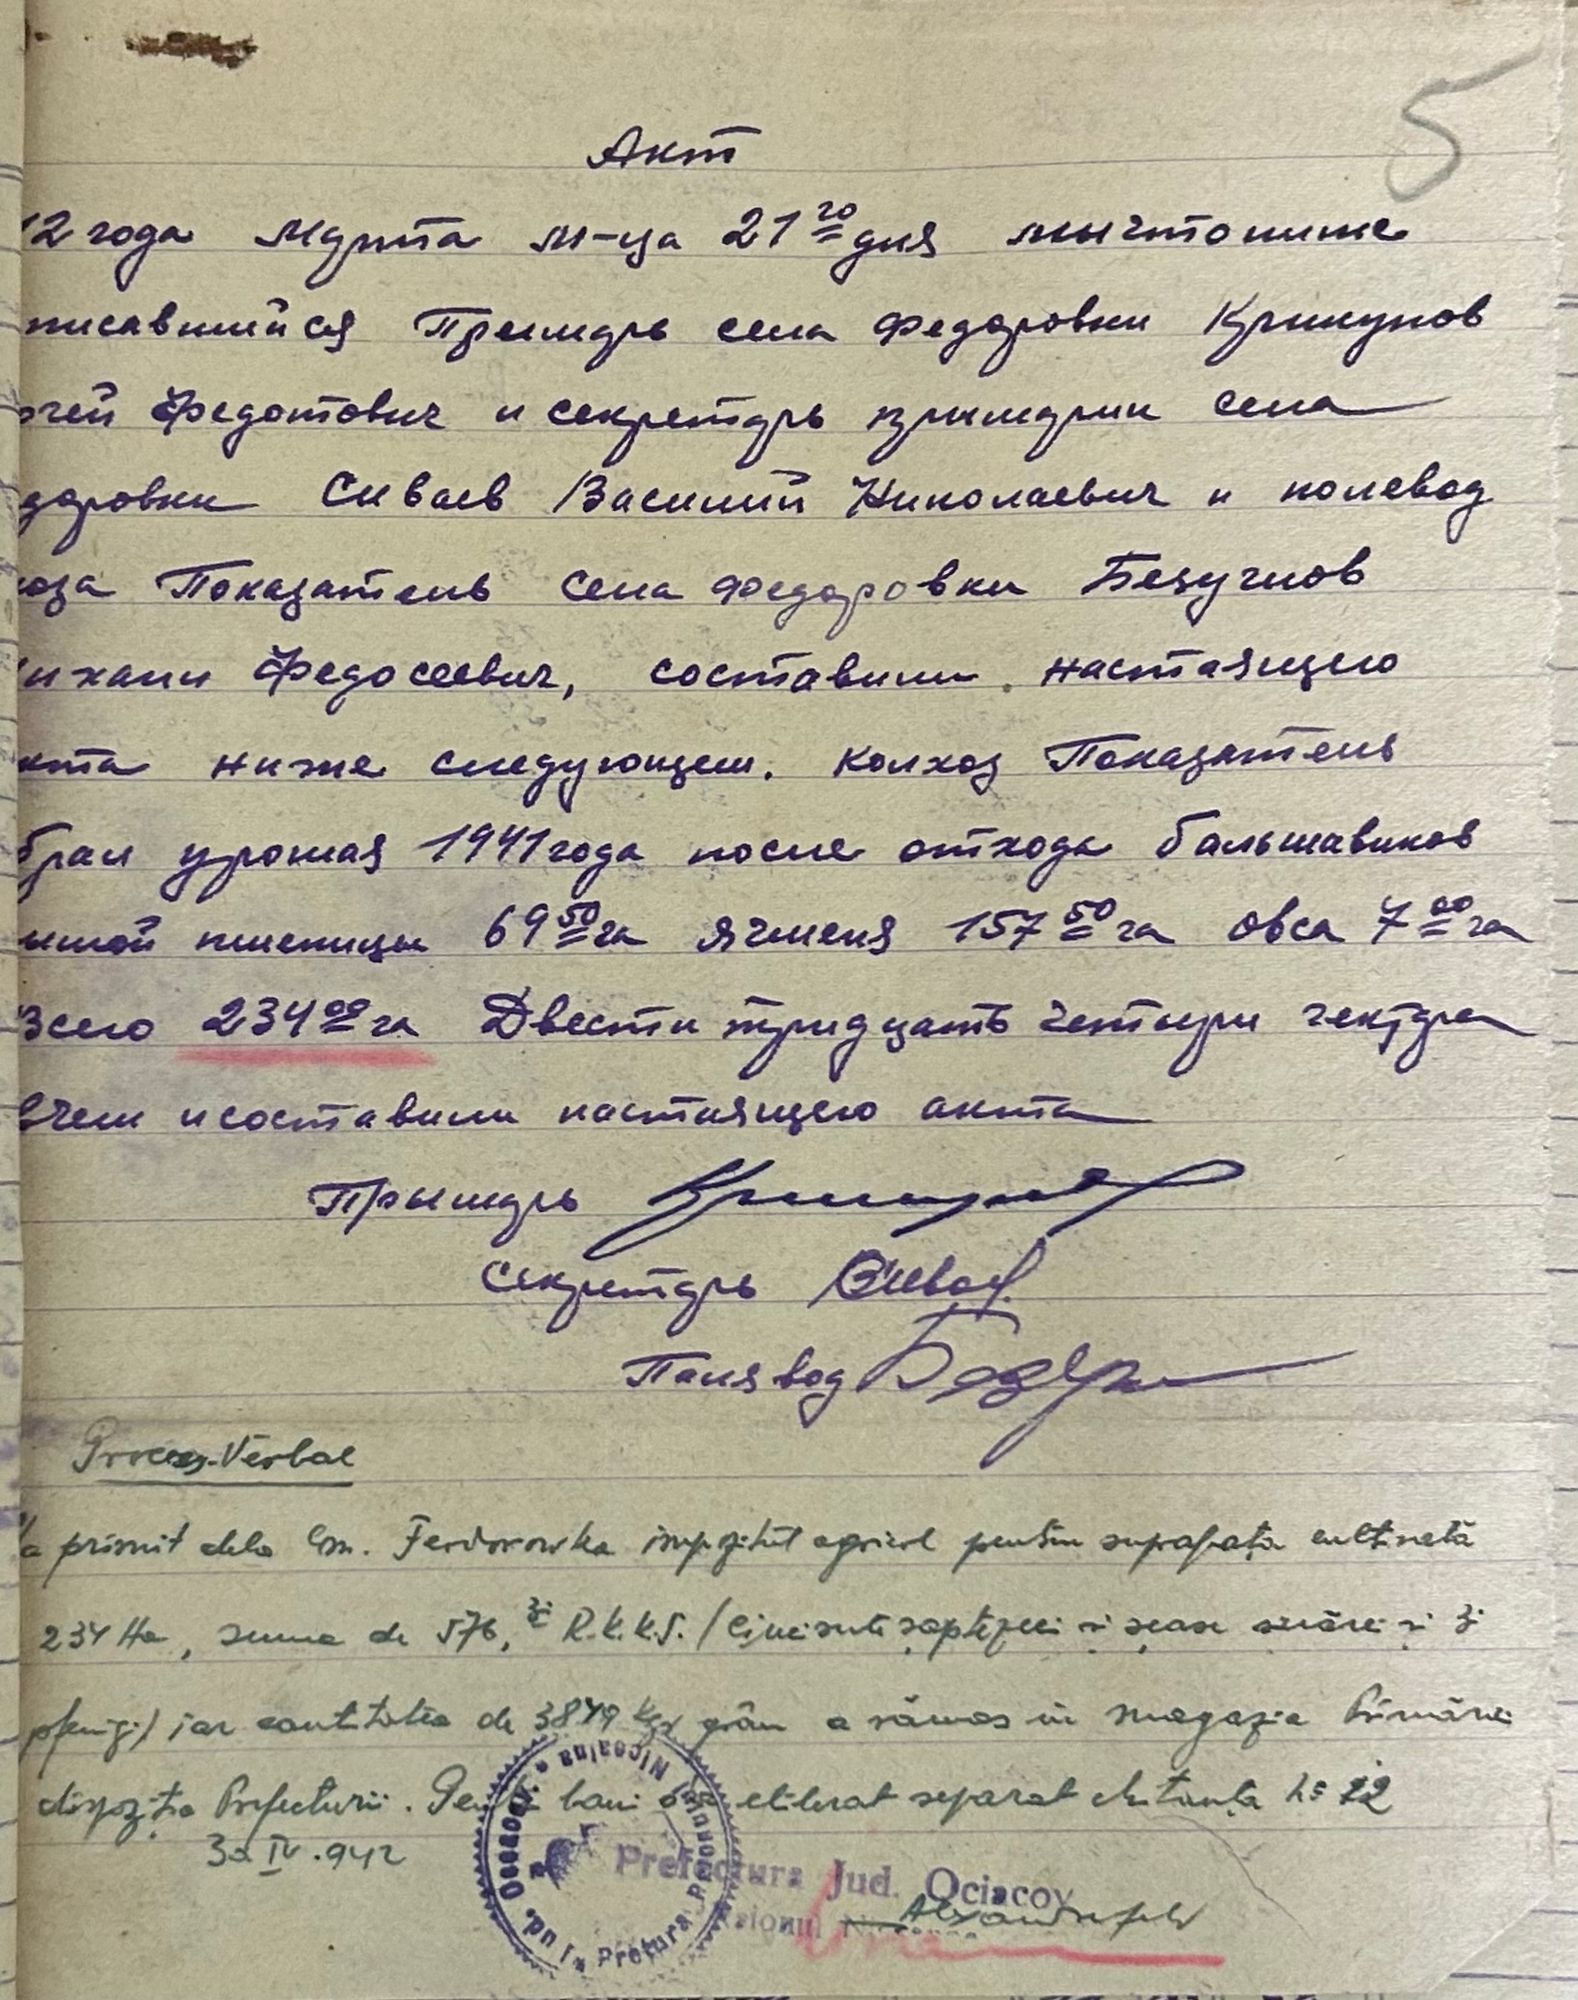 5
Акт
12 года Марта м-ца 21го дня мычтониже
писавшийся Прымарь села Федаровки Крикунов
гей Федотович и секретарь примарии села
даровки Сиваев Василий Николаевич и полевод
хоза Показатель села Федаровки Безучнов
ихаил Федосеевич, составили настаящего
кта ниже следующем. Колхоз Показатель
брал урожая 1941 года после отхода бальшавиков
имой пшеницы 69 50 га ячменя 157 50 га овса 7 00 га
Всего 234 00 га Двести тридцать четыри гектра
вчем и составили настаящего акта
Прымарь
Секретарь Сиваев
Палявод
Proces-Verbal
a primit dela Com. Feodorowka impozitul agricol pentru suprafața cultivată
234 Ha, suma de 576, 3 R.K.K.S. / Cincisute șaptezeci și șase mărci și 3
pfenigi) iar cantitatea de 3849 kgr grâu a rămas în magazia Primăriei
dispoziția Prefecturii. Pentru bani s'a eliberat separat chitanța No 22
30 IV. 942
Prefectura Jud. Ociacov
Raionul
Jud. Oceacov * Pretura Raionului Nicoaina *